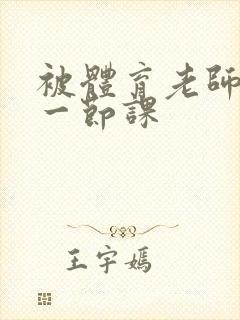 被體育老師
一節課
王宇嫣